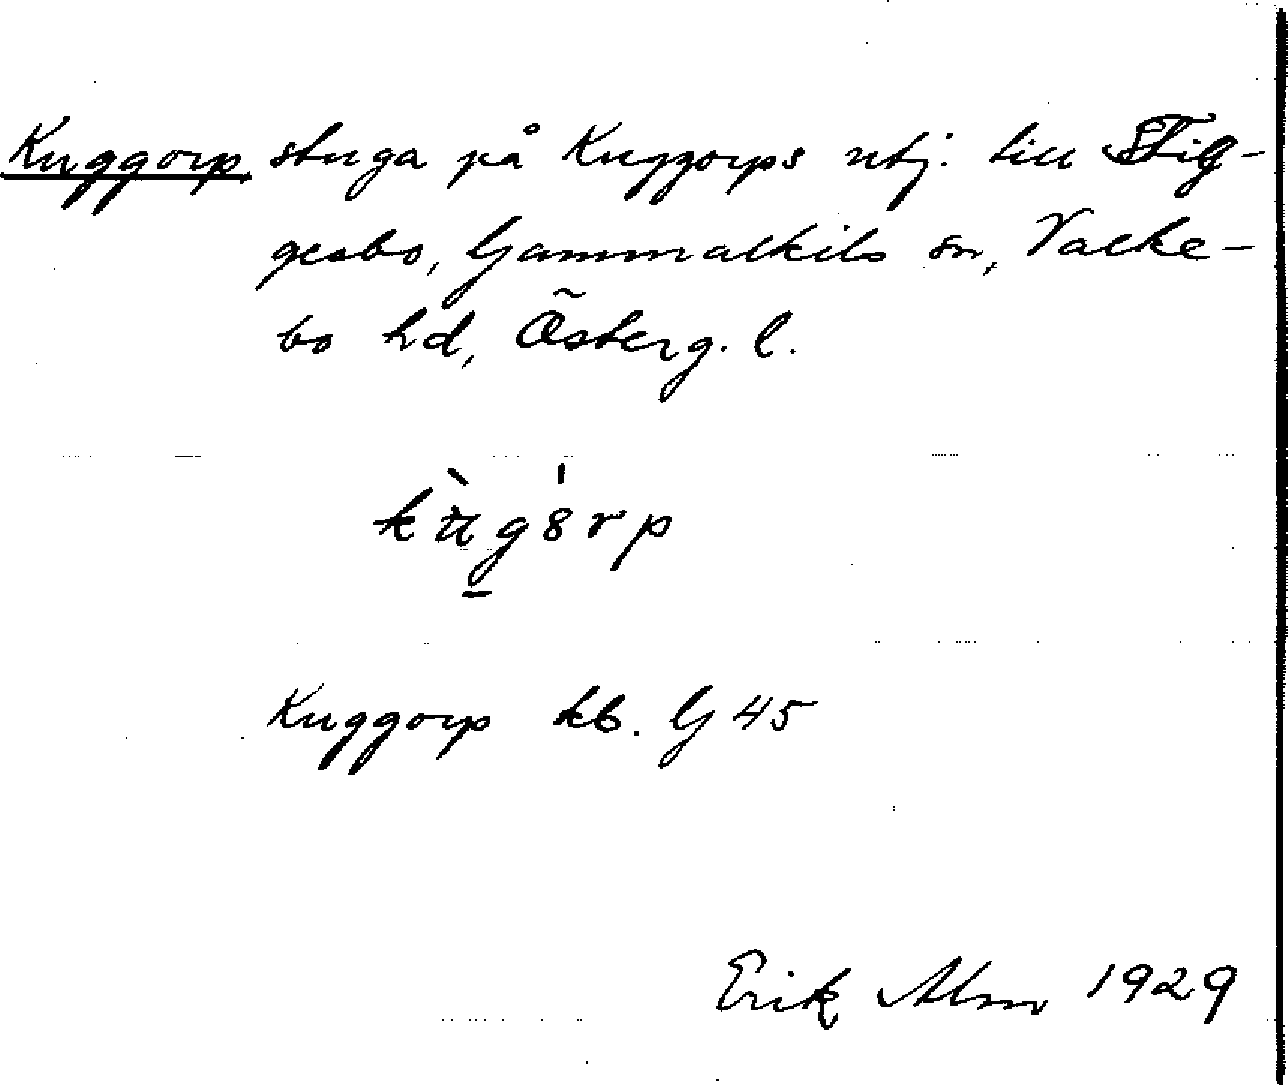 Kuggorp stuga på Kuggorps utj. till Stig-
gesbo, Gammalkils sn, Valke-
bo hd, Österg. l.
Kuggorp kb. G 45
Erik Alm 1929